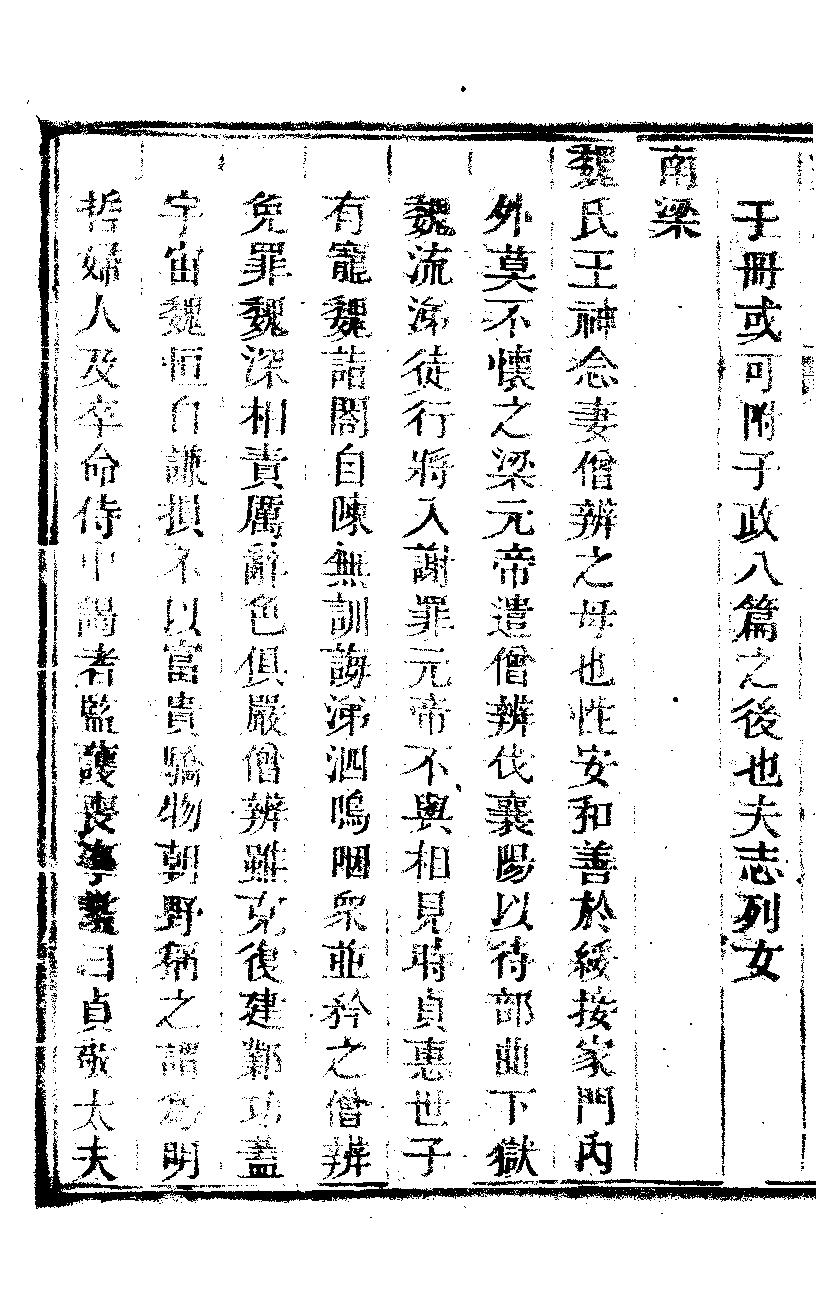 于冊或可附于政八篇之後也夫志列女
南梁
魏氏王神念妻僧辨之母也性安和善於綏接家門內
外莫不懷之梁元帝遣僧辨伐襄陽以待部曲下獄
魏流涕徒行將入謝罪元帝不與相見時貞惠世子
有寵魏詣閤自陳無訓誨涕泗嗚咽衆並矜之僧辨
免罪魏深相責厲辭色俱嚴僧辨雖克復建鄴功蓋
宇宙魏恒自謙損不以富貴驕物朝野稱之謂為明
哲婦人及卒命侍中謁者監護喪事謚曰貞敬太夫